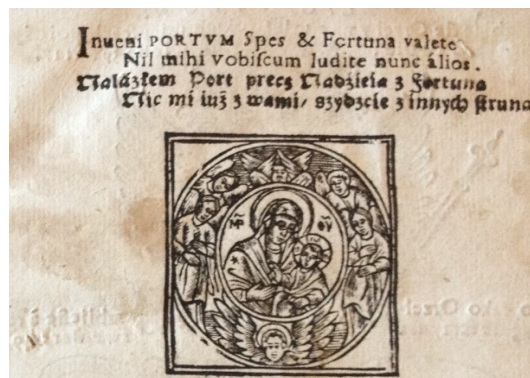 Inueni PORTVM Spes & Fortuna valete
Nil mihi vobiscum ludite nunc álios.
Nalázłem Port precz Nadzieia z Fortuna
Nic mi iuż z wami/ szydzcie z innych struna
ΜΗΡ ΘΥ